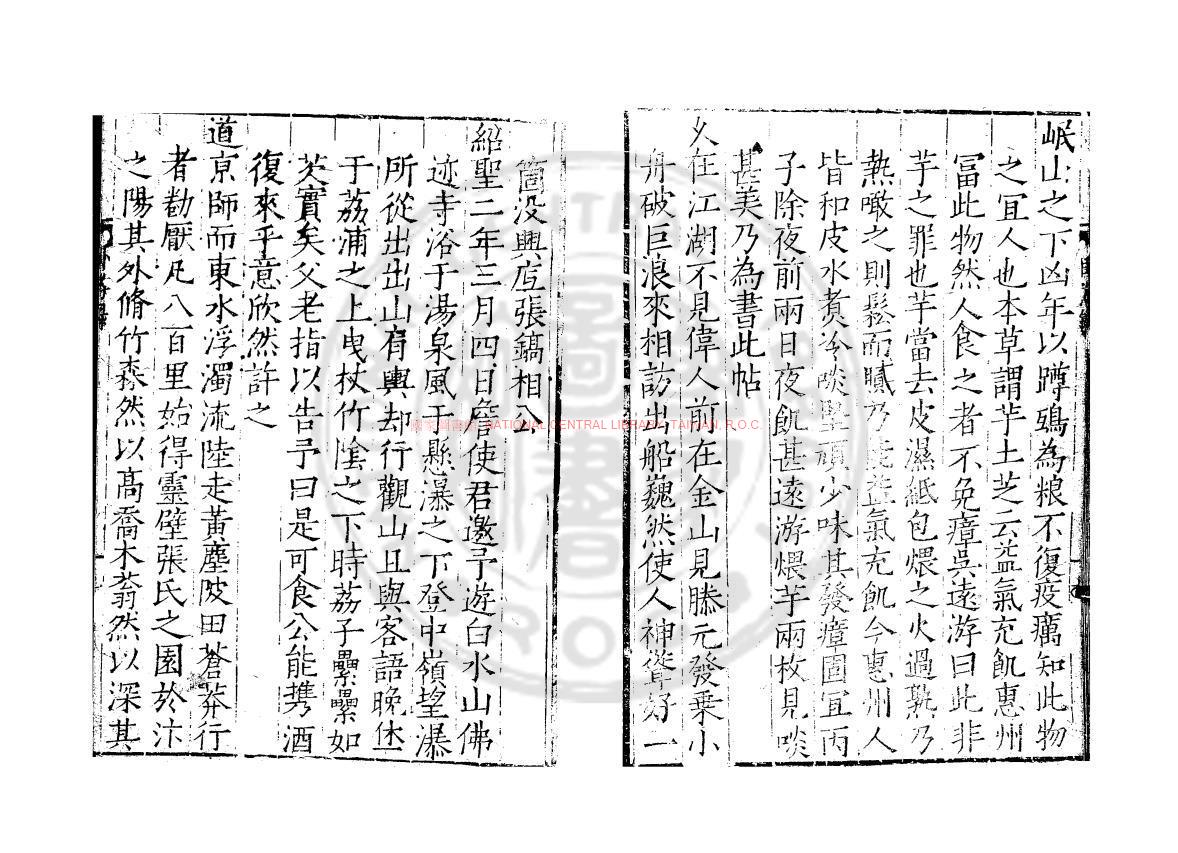 岷山之下凶年以蹲鴟為粮不復疫癘知此物
之宜人也本草謂芋土芝云益氣充飢惠州
冨此物然人食之者不免瘴吳遠游曰此非
芋之罪也芋當去皮濕紙包煨之火過熟乃
熱噉之則鬆而膩乃能益氣充飢今惠州人
皆和皮水煮冷啖堅頑少味其發瘴固宜丙
子除夜前兩日夜飢甚遠游煨芋兩枚見啖
甚美乃為書此帖
久在江湖不見偉人前在金山見滕元發乗小
舟破巨浪來相訪出船巍然使人神聳好一
箇没興底張鎬相公
紹聖二年三月四日詹使君邀予遊白水山佛
迹寺浴于湯泉風于懸瀑之下登中嶺望瀑
所從出出山有輿却行觀山且與客語晚休
于荔浦之上曳杖竹陰之下時荔子纍纍如
芡實矣父老指以告予曰是可食公能携酒
復來乎意欣然許之
道京師而東水浮濁流陸走黃塵陂田蒼莽行
者勌厭凡八百里始得靈壁張氏之園於汴
之陽其外脩竹森然以高喬木蓊然以深其
國家圖書館 NATIONAL CENTRAL LIBRARY, TAIWAN, R.O.C.